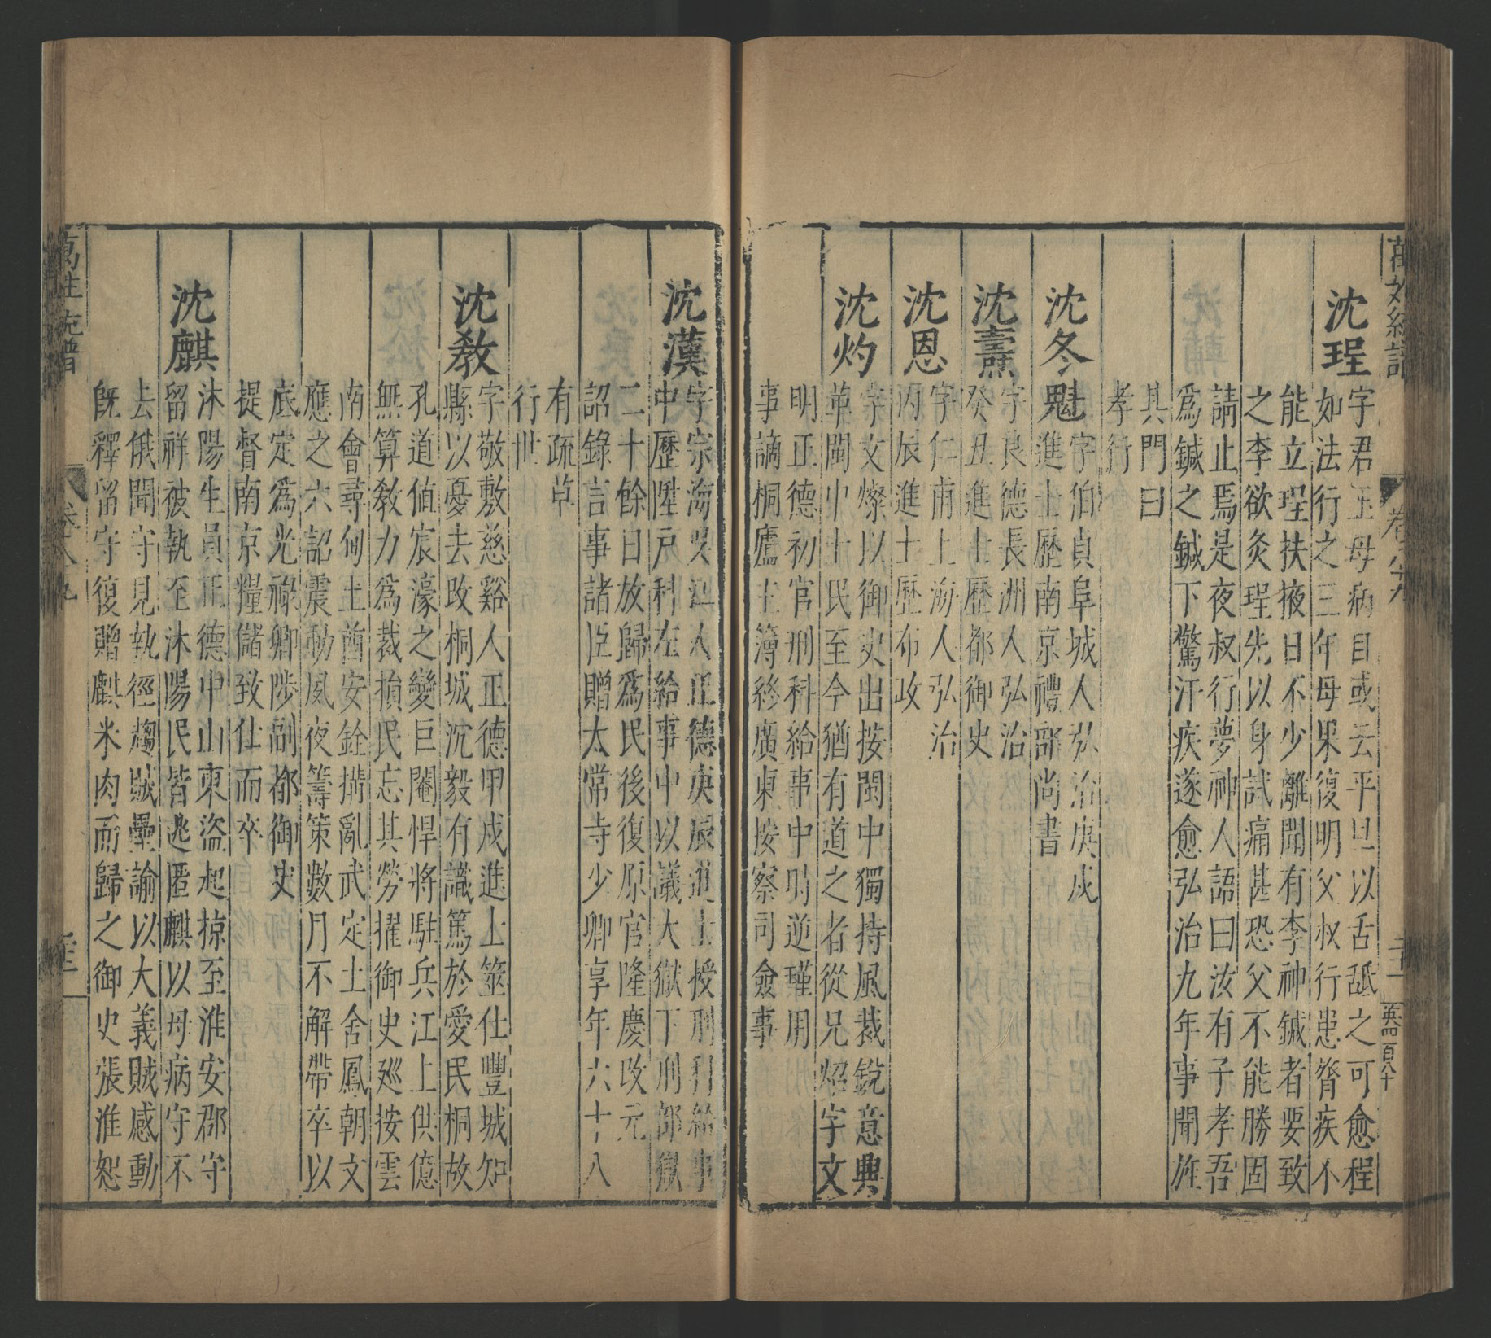 萬姓統譜
卷八九
沈珵
字君玉母病目或云平旦以舌舐之可愈程
如法行之三年母果復明父叔行患脊疾不
能立珵扶掖日不少離聞有李神鍼者要致
之李欲灸珵先以身試痛甚恐父不能勝固
請止焉是夜叔行夢神人語曰汝有子孝吾
爲鍼之鍼下驚汗疾遂愈弘治九年事聞旌
其門曰
孝行
沈冬魁
字伯貞阜城人弘治庚戌
進士歷南京禮部尚書
沈燾
字良德長洲人弘治
癸丑進士歷都御史
沈恩
字仁甫上海人弘治
丙辰進士歷布政
沈灼
字文燦以御史出按閩中獨持風裁銳意典
革閩中士民至今猶有道之者從兄炤字文
明正德初官刑科給事中時逆瑾用
事謫桐廬主簿終廣東按察司僉事
沈漢
字宗海吳江人正德庚辰進士授刑科給事
中歷陞戶科左給事中以議大獄下刑部獄
二十餘日放歸爲民後復原官隆慶改元
詔錄言事諸臣贈太常寺少卿享年六十八
有疏草
行世
沈教
字敬敷慈谿人正德甲戌進士筮仕豐城知
縣以憂去改桐城沈毅有識篤於愛民桐故
孔道值宸濠之變巨閹悍將駐兵江上供億
無算教力爲裁損民忘其勞擢御史廵按雲
南會尋甸土酋安銓搆亂武定土舍鳳朝文
應之六詔震動夙夜籌策數月不解帶卒以
底定爲光祿卿陟副都御史
提督南京糧儲致仕而卒
沈麒
沐陽生員正德中山東盜起掠至淮安郡守
畱祥被執至沐陽民皆逃匿麒以母病守不
去俄聞守見執徑趨賊壘諭以大義賊感動
旣釋畱守復贈麒米肉而歸之御史張淮恕
萬姓統譜
卷八九